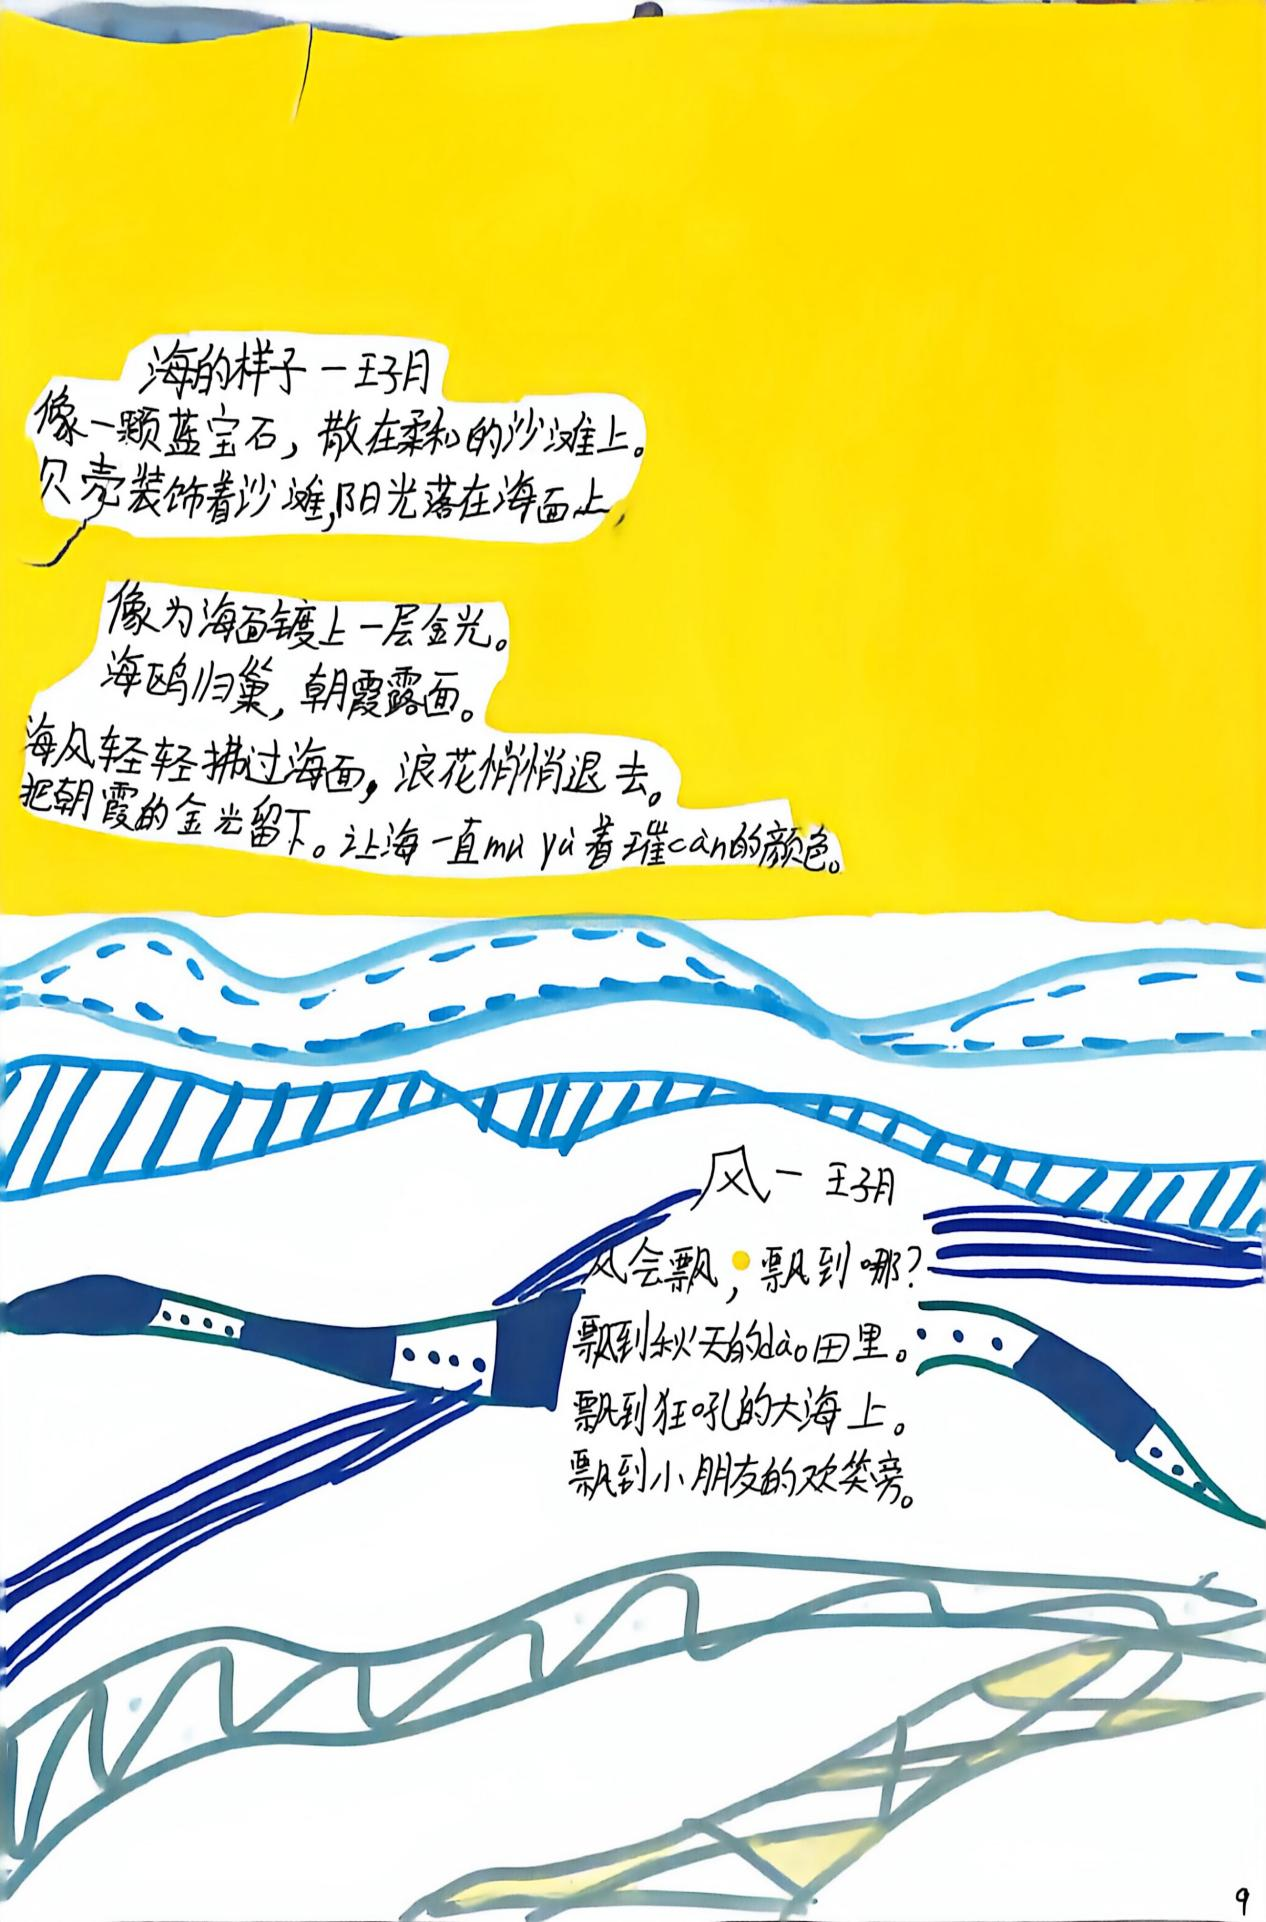 海的样子一王子月
像一颗蓝宝石，散在柔和的沙滩上。
贝壳装饰着沙滩，阳光落在海面上，
像为海面镀上一层金光。
海鸥归巢，朝霞露面。
海风轻轻拂过海面，浪花悄悄退去。
把朝霞的金光留下。让海一直mu yù着璀càn的颜色。
风一 王子月
风会飘，飘到哪？
飘到秋天的dào田里。
飘到狂吼的大海上。
飘到小朋友的欢笑旁。
9